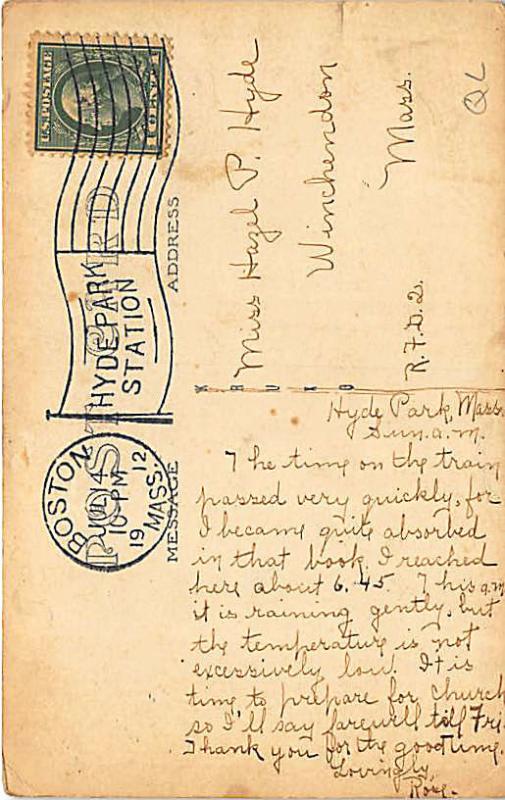 U.S. POSTAGE
1 CENT 1
POST CARD
HYDE PARK
STATION
BOSTON
10 PM
1912
MASS.
ADDRESS
MESSAGE
Miss Hazel P. Hyde
Winchendon
Mass.
R.F.D.2.
QL
K R U X O
Hyde Park, Mass.
Sun. a.m.
The time on the train
passed very quickly, for
I became quite absorbed
in that book. I reached
here about 6.45. This a.m
it is raining gently, but
the temperature is not
excessively low. It is
time to prepare for church
so I'll say farewell till Fri.
Thank you for the good time.
Lovingly,
Rose.